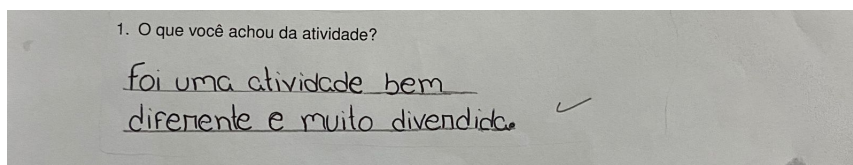 1. O que você achou da atividade?
Foi uma atividade bem
diferente e muito diverdida.